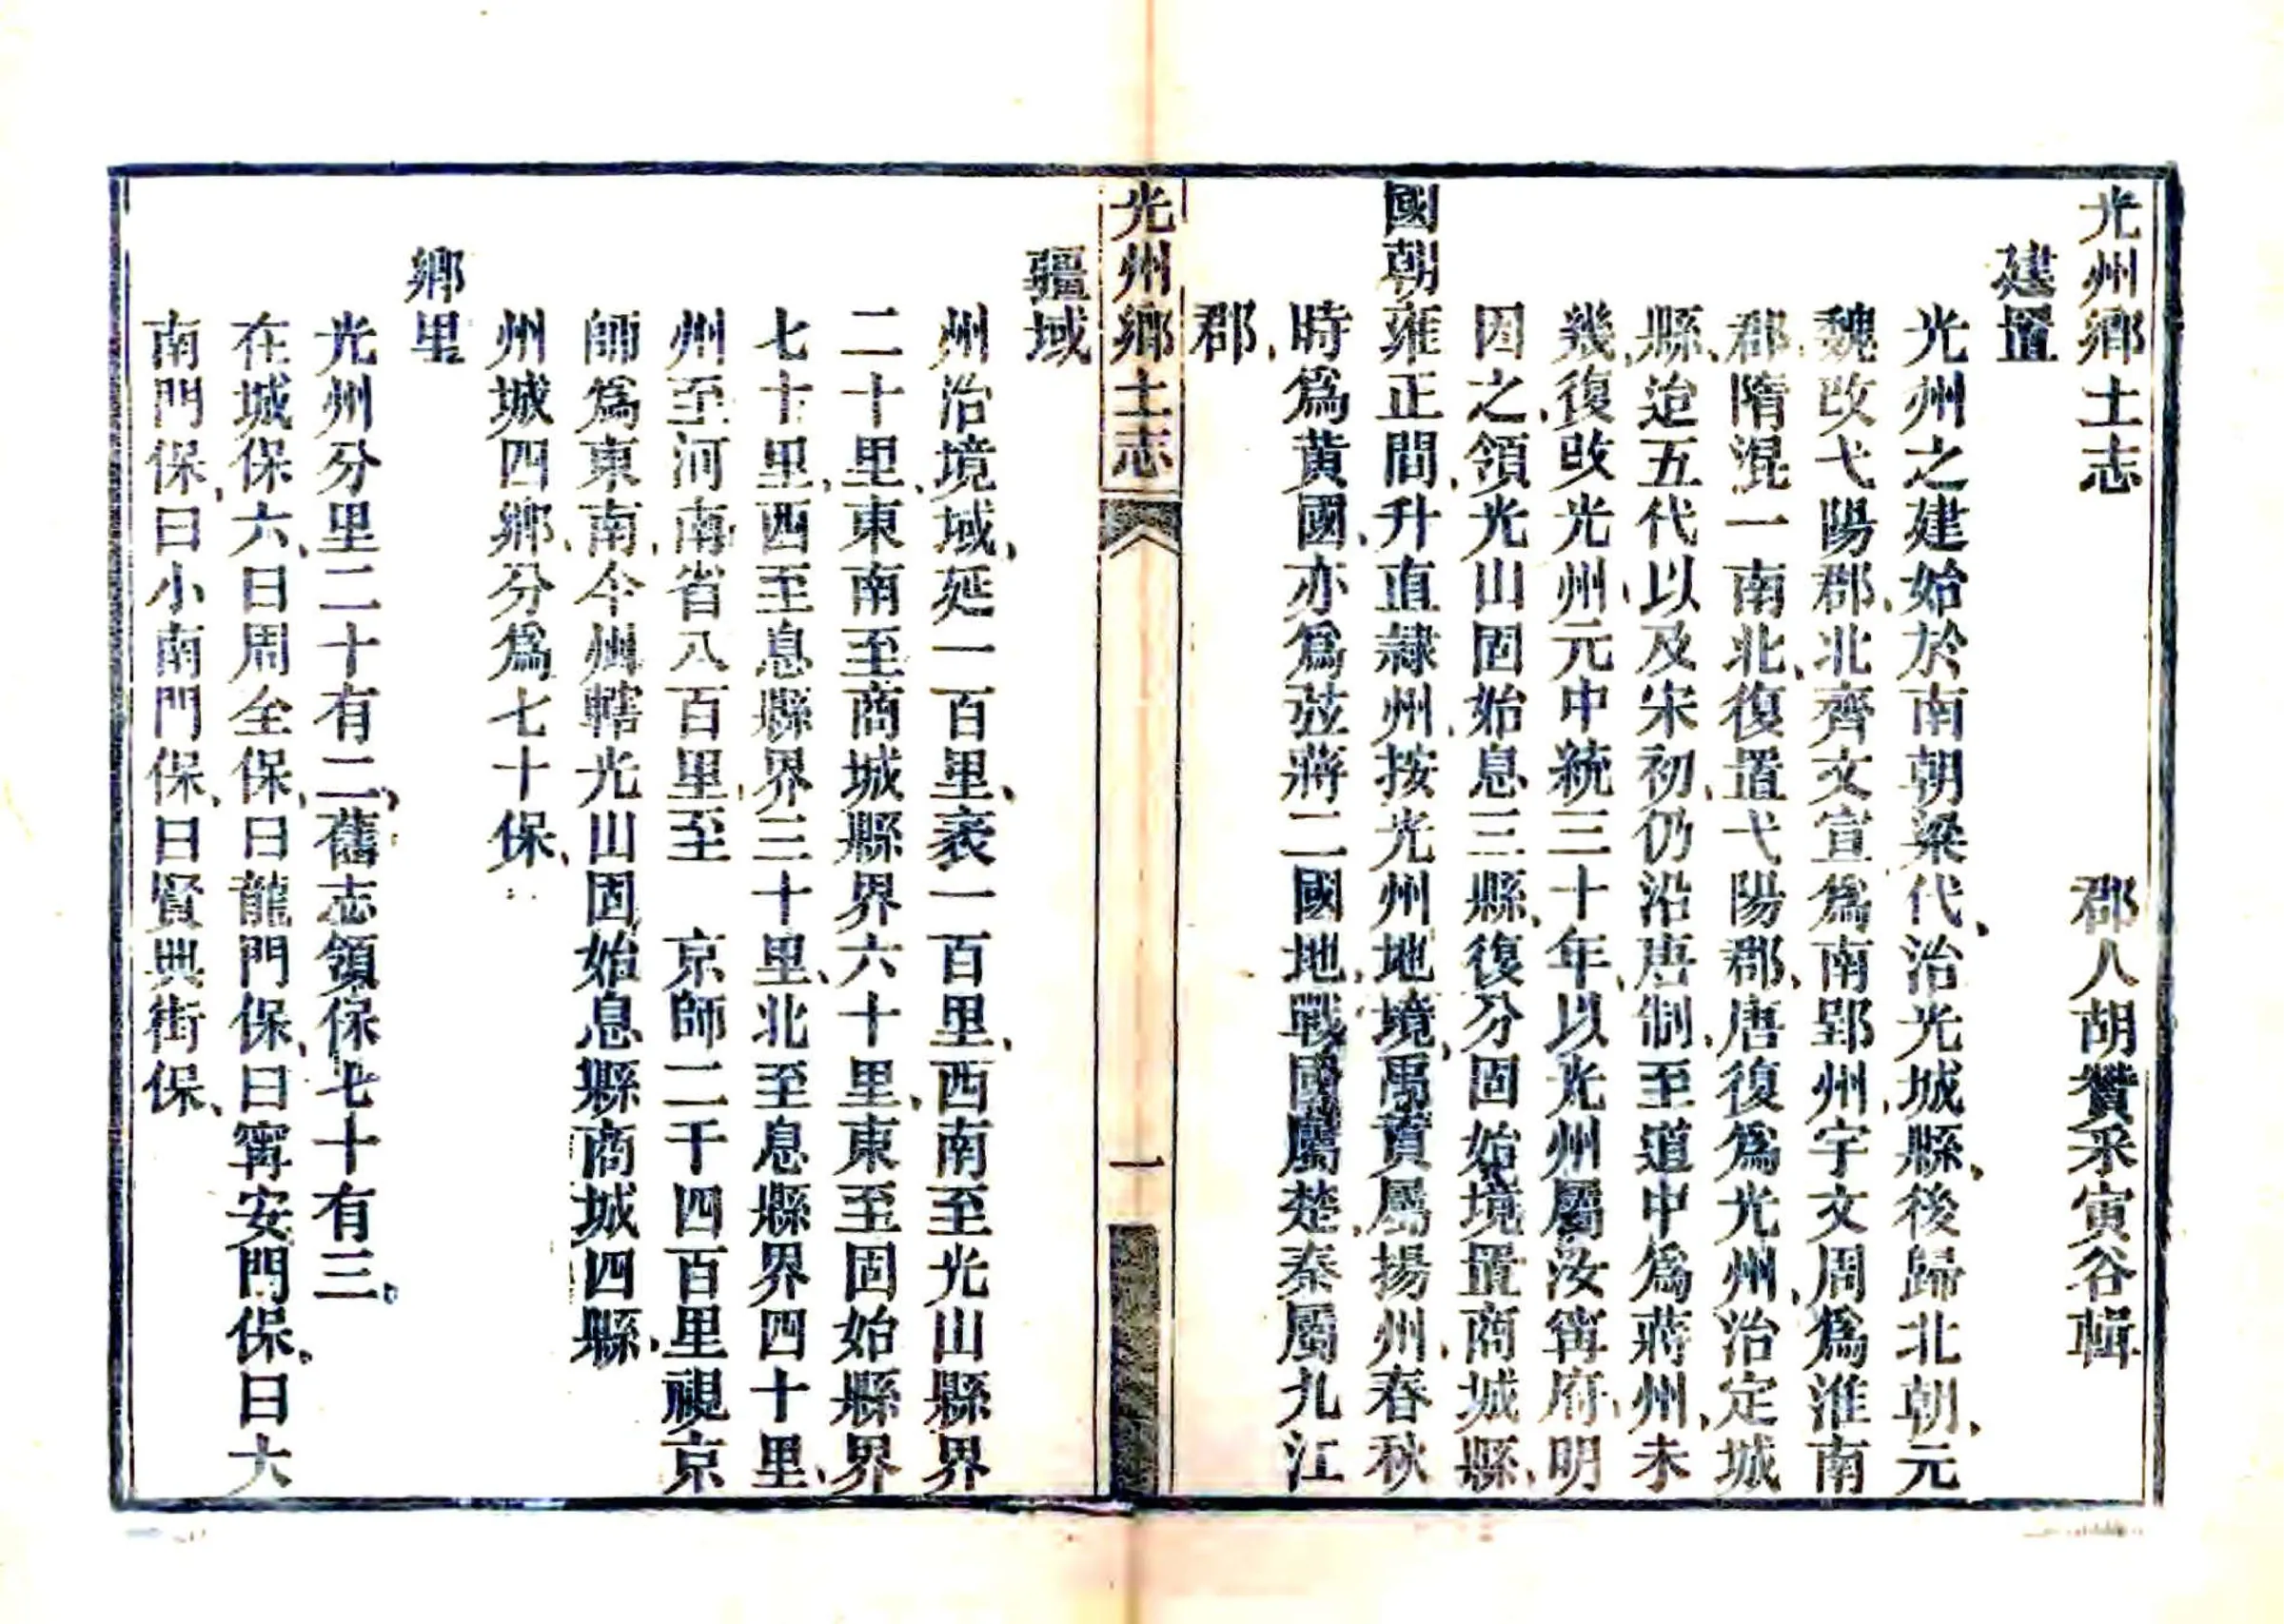 光州鄉土志　郡人胡贊采寅谷輯
建置
光州之建始於南朝梁代、治光城縣、後歸北朝、元
魏改弋陽郡、北齊文宣爲南郢州、宇文周爲淮南
郡、隋混一南北、復置弋陽郡、唐復爲光州、治定城
縣、迨五代以及宋初、仍沿唐制、至道中爲蔣州、未
幾、復改光州、元中統三十年、以光州屬汝甯府、明
因之、領光山固始息三縣、復分固始境置商城縣、
國朝雍正間、升直隷州、按光州地境、禹貢屬揚州、春秋
時爲黃國、亦爲弦蔣二國地、戰國屬楚、秦屬九江
郡、
光州鄉土志　一
疆域
州治境域、延一百里、袤一百里、西南至光山縣界
二十里、東南至商城縣界六十里、東至固始縣界
七十里、西至息縣界三十里、北至息縣界四十里、
州至河南省八百里、至　京師二千四百里視京
師爲東南、今州轄光山固始息縣商城四縣、
州城四鄉、分爲七十保、
鄉里
光州分里二十有二、舊志領保七十有三、
在城保六、曰周全保、曰龍門保、曰甯安門保、曰大
南門保、曰小南門保、曰賢興街保、